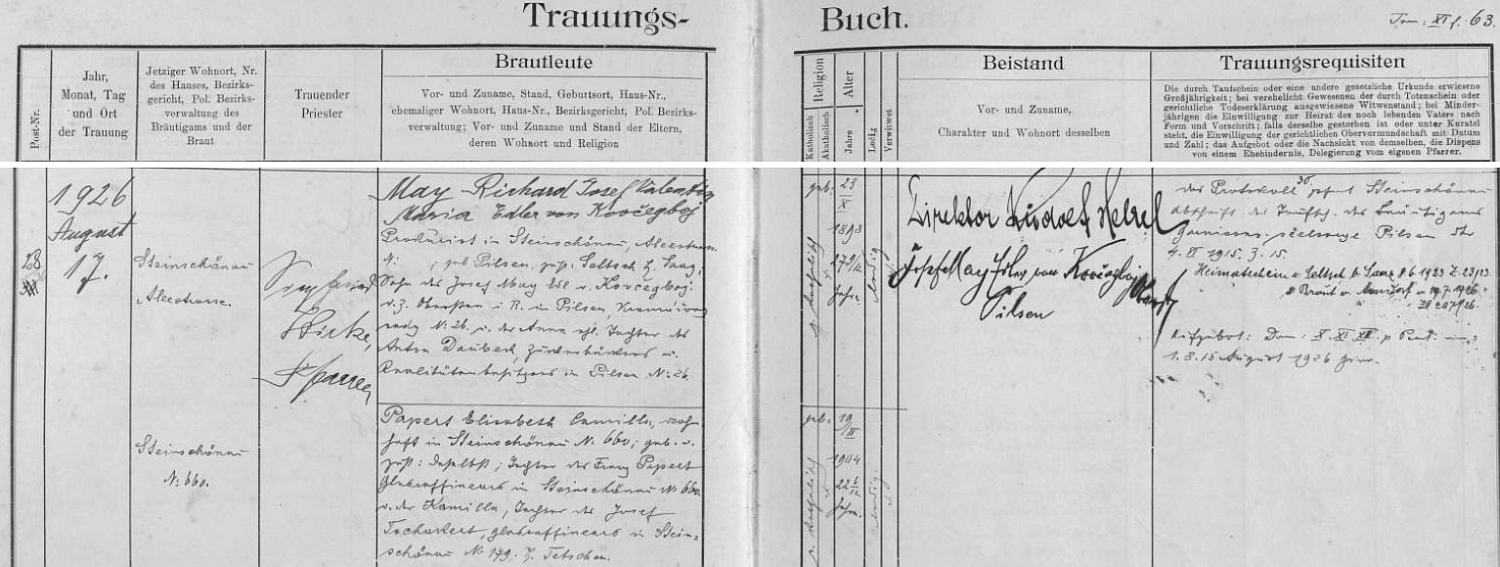 Trauungs-
Buch.
Tom: XI f. 63.
Post-Nr.
Jahr,
Monat, Tag
und Ort
der Trauung
Jetziger Wohnort, Nr.
des Hauses, Bezirks-
gericht, Pol. Bezirks-
verwaltung des
Bräutigams und der
Braut
Trauender
Priester
Brautleute
Vor- und Zuname, Stand, Geburtsort, Haus-Nr.,
ehemaliger Wohnort, Haus-Nr., Bezirksgericht, Pol. Bezirks-
verwaltung; Vor- und Zuname und Stand der Eltern,
deren Wohnort und Religion
Religion
Katholisch
Akatholisch
Alter
Jahre
Ledig
Verwitwet
Beistand
Vor- und Zuname,
Charakter und Wohnort desselben
Trauungsrequisiten
Die durch Taufschein oder eine andere gesetzliche Urkunde erwiesene
Großjährigkeit; bei verehelicht Gewesenen der durch Totenschein oder
gerichtliche Todeserklärung ausgewiesene Witwenstand; bei Minder-
jährigen die Einwilligung zur Heirat des noch lebenden Vaters nach
Form und Vorschrift; falls derselbe gestorben ist oder unter Kuratel
steht, die Einwilligung der gerichtlichen Obervormundschaft mit Datum
und Zahl; das Aufgebot oder die Nachsicht von demselben, die Dispens
von einem Ehehindernis, Delegierung vom eigenen Pfarrer.
28
1926
August
17.
Steinschönau
Alleestrasse.
Hirke,
Pfarrer
May Richard Josef Valentin
Maria Edler von Kovčegboj
in Steinschönau, Alleestrasse
N: , geb. Pilsen, zust. Seltsch b. Saaz,
Sohn des Josef May Edl. v. Kovčegboj
in Pilsen,
N: 26. u. der Anna ehl. Tochter des
Anton Daubeck, u.
Realitätenbesitzers in Pilsen N: 26.
geb. 23
XI
1898
27 9/12
Jahre
ledig
Direktor Rudolf
Josef May Edler von Kovčegboj Oberst
Pilsen
Steinschönau
Abschrift des Taufsch. des Bräutigams
Pilsen
4. VI 1915. 3. 15.
Heimatschein v. Seltsch b. Saaz 8.6.1923 Z. 23/23.
" Braut v. 19.7.1926
Aufgebot: Dom. X. XI. XII. p. Pent.
1. 8. 15 August 1926
Steinschönau
N: 660.
Papert Elisabeth Camilla, wohn-
haft in Steinschönau N. 660; geb. u.
zust: daselbst; Tochter des Franz Papert
Glasraffineurs in Steinschönau N: 660
u. der Kamilla, Tochter des Josef
Tschakert, Glasraffineurs in Stein-
schönau N: 179. b. Tetschen.
geb. 19
II
1904
22 6/12
Jahre.
ledig